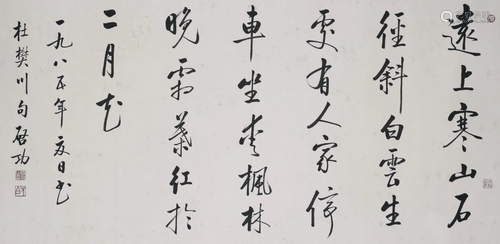 遠上寒山石
徑斜白雲生
處有人家停
車坐愛楓林
晚霜葉紅於
二月花
一九八五年夏日書
杜樊川句啓功